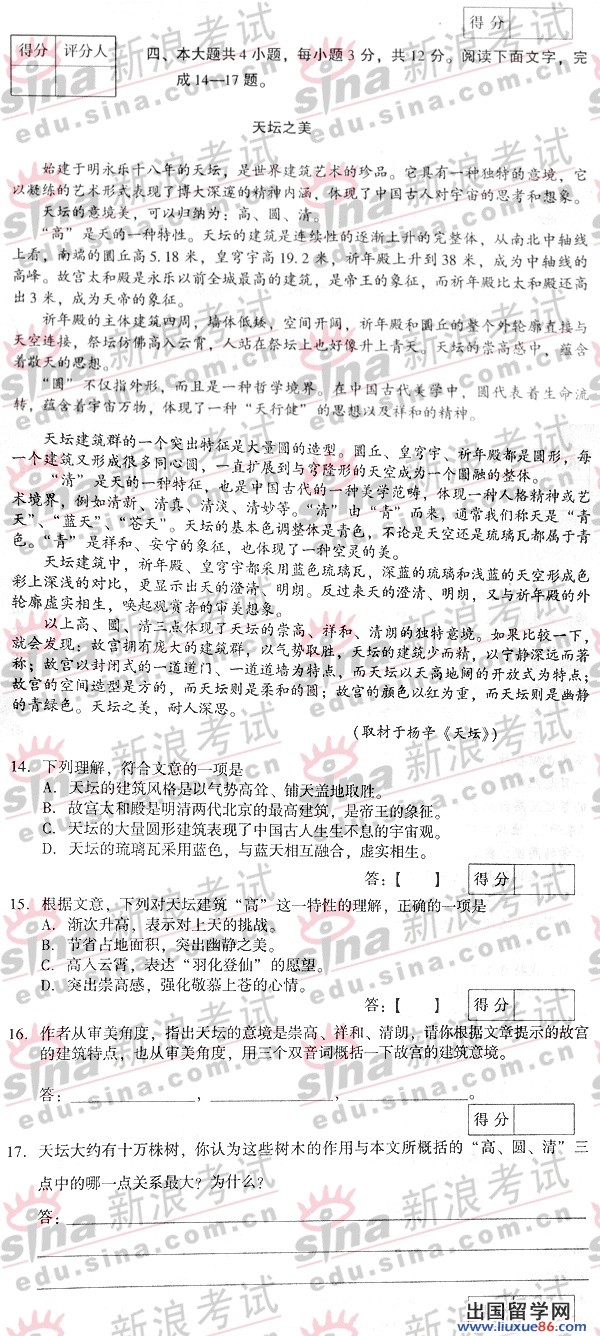 得分
得分 评分人
四、本大题共4小题，每小题3分，共12分。阅读下面文字，完
成14—17题。
天坛之美
始建于明永乐十八年的天坛，是世界建筑艺术的珍品。它具有一种独特的意境，它
以凝练的艺术形式表现了博大深邃的精神内涵，体现了中国古人对宇宙的思考和想象。
天坛的意境美，可以归纳为：高、圆、清。
“高”是天的一种特性。天坛的建筑是连续性的逐渐上升的完整体，从南北中轴线
上看，南端的圜丘高5.18米，皇穹宇高19.2米，祈年殿上升到38米，成为中轴线的
高峰。故宫太和殿是永乐以前全城最高的建筑，是帝王的象征，而祈年殿比太和殿还高
出3米，成为天帝的象征。
祈年殿的主体建筑四周，墙体低矮，空间开阔，祈年殿和圜丘的整个外轮廓直接与
天空连接，祭坛仿佛高入云霄，人站在祭坛上也好像升上青天。天坛的崇高感中，蕴含
着敬天的思想。
“圆”不仅指外形，而且是一种哲学境界。在中国古代美学中，圆代表着生命流
转，蕴含着宇宙万物，体现了一种“天行健”的思想以及祥和的精神。
天坛建筑群的一个突出特征是大量圆的造型。圜丘、皇穹宇、祈年殿都是圆形，每
一个建筑又形成很多同心圆，一直扩展到与穹隆形的天空成为一个圆融的整体。
“清”是天的一种特征，也是中国古代的一种美学范畴，体现一种人格精神或艺
术境界，例如清新、清真、清淡、清妙等。“清”由“青”而来，通常我们称天是“青
天”、“蓝天”、“苍天”。天坛的基本色调整体是青色，不论是天空还是琉璃瓦都属于青
色。“青”是祥和、安宁的象征，也体现了一种空灵的美。
天坛建筑中，祈年殿、皇穹宇都采用蓝色琉璃瓦，深蓝的琉璃和浅蓝的天空形成色
彩上深浅的对比，更显示出天的澄清、明朗。反过来天的澄清、明朗，又与祈年殿的外
轮廓虚实相生，唤起观赏者的审美想象。
以上高、圆、清三点体现了天坛的崇高、祥和、清朗的独特意境。如果比较一下，
就会发现：故宫拥有庞大的建筑群，以气势取胜，天坛的建筑少而精，以宁静深远而著
称；故宫以封闭式的一道道门、一道道墙为特点，而天坛以天高地阔的开放式为特点；
故宫的空间造型是方的，而天坛则是柔和的圆；故宫的颜色以红为重，而天坛则是幽静
的青绿色。天坛之美，耐人深思。
（取材于杨辛《天坛》）
14. 下列理解，符合文意的一项是
A. 天坛的建筑风格是以气势高耸、铺天盖地取胜。
B. 故宫太和殿是明清两代北京的最高建筑，是帝王的象征。
C. 天坛的大量圆形建筑表现了中国古人生生不息的宇宙观。
D. 天坛的琉璃瓦采用蓝色，与蓝天相互融合，虚实相生。
答：【 】 得分
15. 根据文意，下列对天坛建筑“高”这一特性的理解，正确的一项是
A. 渐次升高，表示对上天的挑战。
B. 节省占地面积，突出幽静之美。
C. 高入云霄，表达“羽化登仙”的愿望。
D. 突出崇高感，强化敬慕上苍的心情。
答：【 】 得分
16. 作者从审美角度，指出天坛的意境是崇高、祥和、清朗，请你根据文章提示的故宫
的建筑特点，也从审美角度，用三个双音词概括一下故宫的建筑意境。
答：____________，____________，____________。
得分
17. 天坛大约有十万株树，你认为这些树木的作用与本文所概括的“高、圆、清”三
点中的哪一点关系最大？为什么？
答：
sina 新浪考试
edu.sina.com.cn
出国留学网
www.liuxue86.com